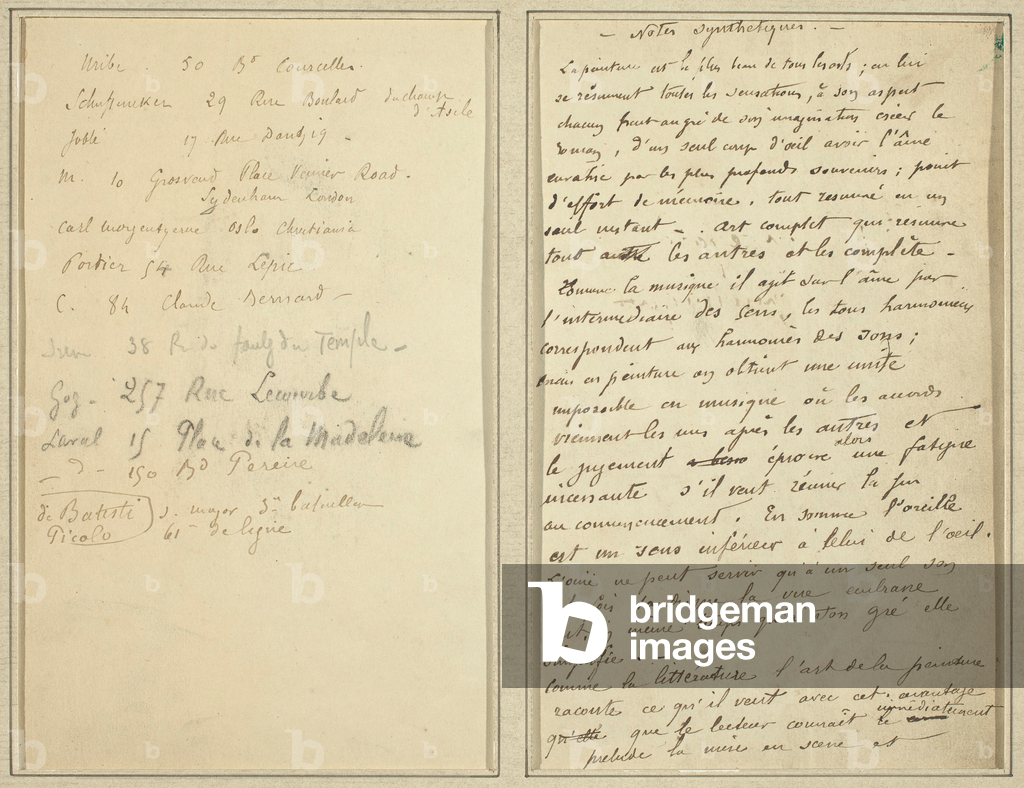 Uribe . 50 Bd Courcelles.
Schuffneker 29 Rue Boulard du champ
d'Asile
Jobbé 17 Rue Dantzig -
M. 10 Grosvend Place Venner Road.
Sydenham London
Carl morgentzerne Oslo Christiania
Portier 54 Rue Lépic
C. 84 Claude Bernard -
38 R du faubg du Temple -
257 Rue Lecourbe
Laval 15 Place de la Madeleine
d - 150 Bd Pereire
de Batisti
Picolo
s. major 3me bataillon
61 de ligne
- Notes Synthetiques. -
La peinture est le plus beau de tous les arts ; en lui
se résument toutes les sensations, à son aspect
chacun peut au gré de son imagination créer le
roman, d'un seul coup d'oeil avoir l'âme
envahie par les plus profonds souvenirs ; point
d'effort de mémoire, tout resumé en un
seul instant - . Art complet qui resume
tout les autres et les complète -
Comme la musique il agit sur l'âme par
l'intermediaire des sens, les tons harmonieux
correspondent aux harmonies des sons ;
mais en peinture on obtient une unité
impossible en musique où les accords
viennent les uns après les autres et
le jugement éprouve alors une fatigue
incessante s'il veut réunir la fin
au commencement. En somme l'oreille
est un sens inférieur à celui de l'oeil.
L'ouïe ne peut servir qu'à un seul son
la vue embrasse
même temps qu'à son gré elle
simplifie
Comme la litterature l'art de la peinture
raconte ce qu'il veut avec cet avantage
que le lecteur connaît immédiatement
le
prelude la mise en scene et
bridgeman
images